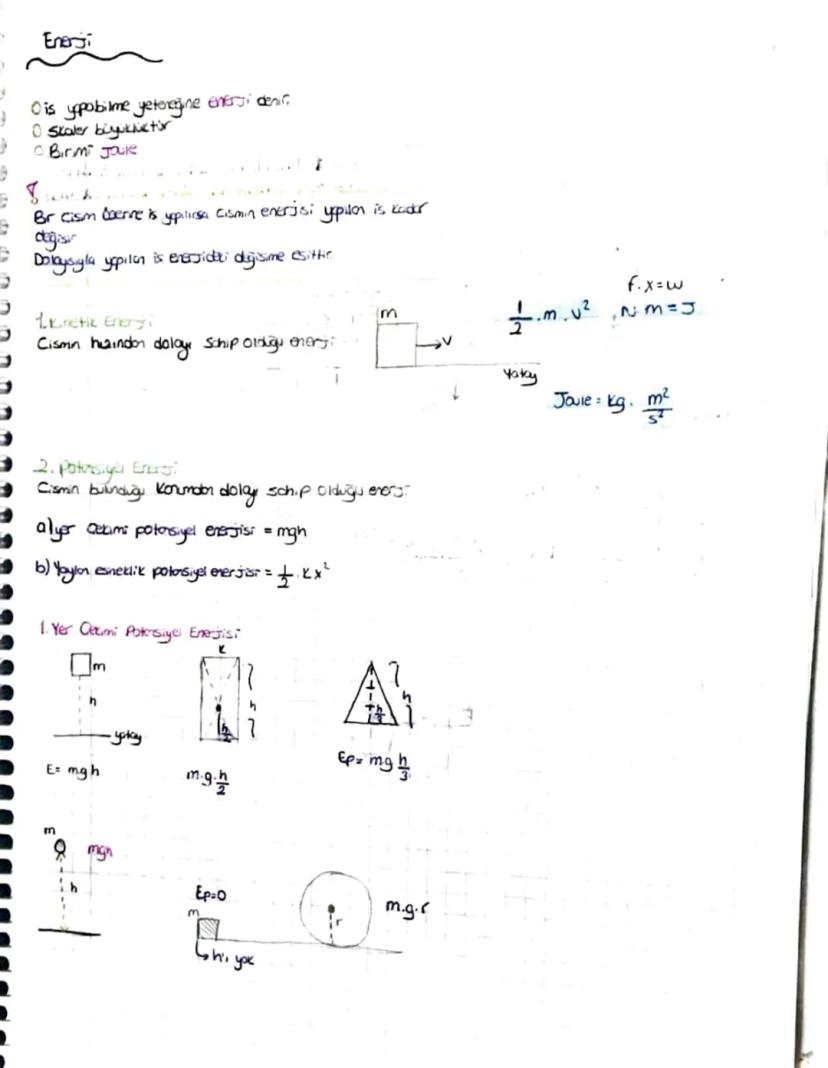 Enerji
iş yapabilme yeteneğine enerji denir.
Skaler büyüklüktür
Birimi Joule
Bir cisim üzerine iş yapılırsa cismin enerjisi yapılan iş kadar
değişir
Dolayısıyla yapılan iş enerjideki değişime eşittir.
f.x=w
1. Kinetik Enerji
m
1/2 . m . v²
N. m = J
Cismin hızından dolayı sahip olduğu enerji
v
yatay
Joule = kg . m²/s²
2. Potansiyel Enerji
Cismin bulunduğu konumdan dolayı sahip olduğu enerji
a) yer çekimi potansiyel enerjisi = mgh
b) Yayların esneklik potansiyel enerjisi = 1/2 . k x²
1. Yer Çekimi Potansiyel Enerjisi
m
h
yatay
K
h
h/2
h
h/3
E= mgh
m.g.h/2
Ep= mg h/3
m
mgh
h
Ep=0
m
r
m.g.r
h'ı yok